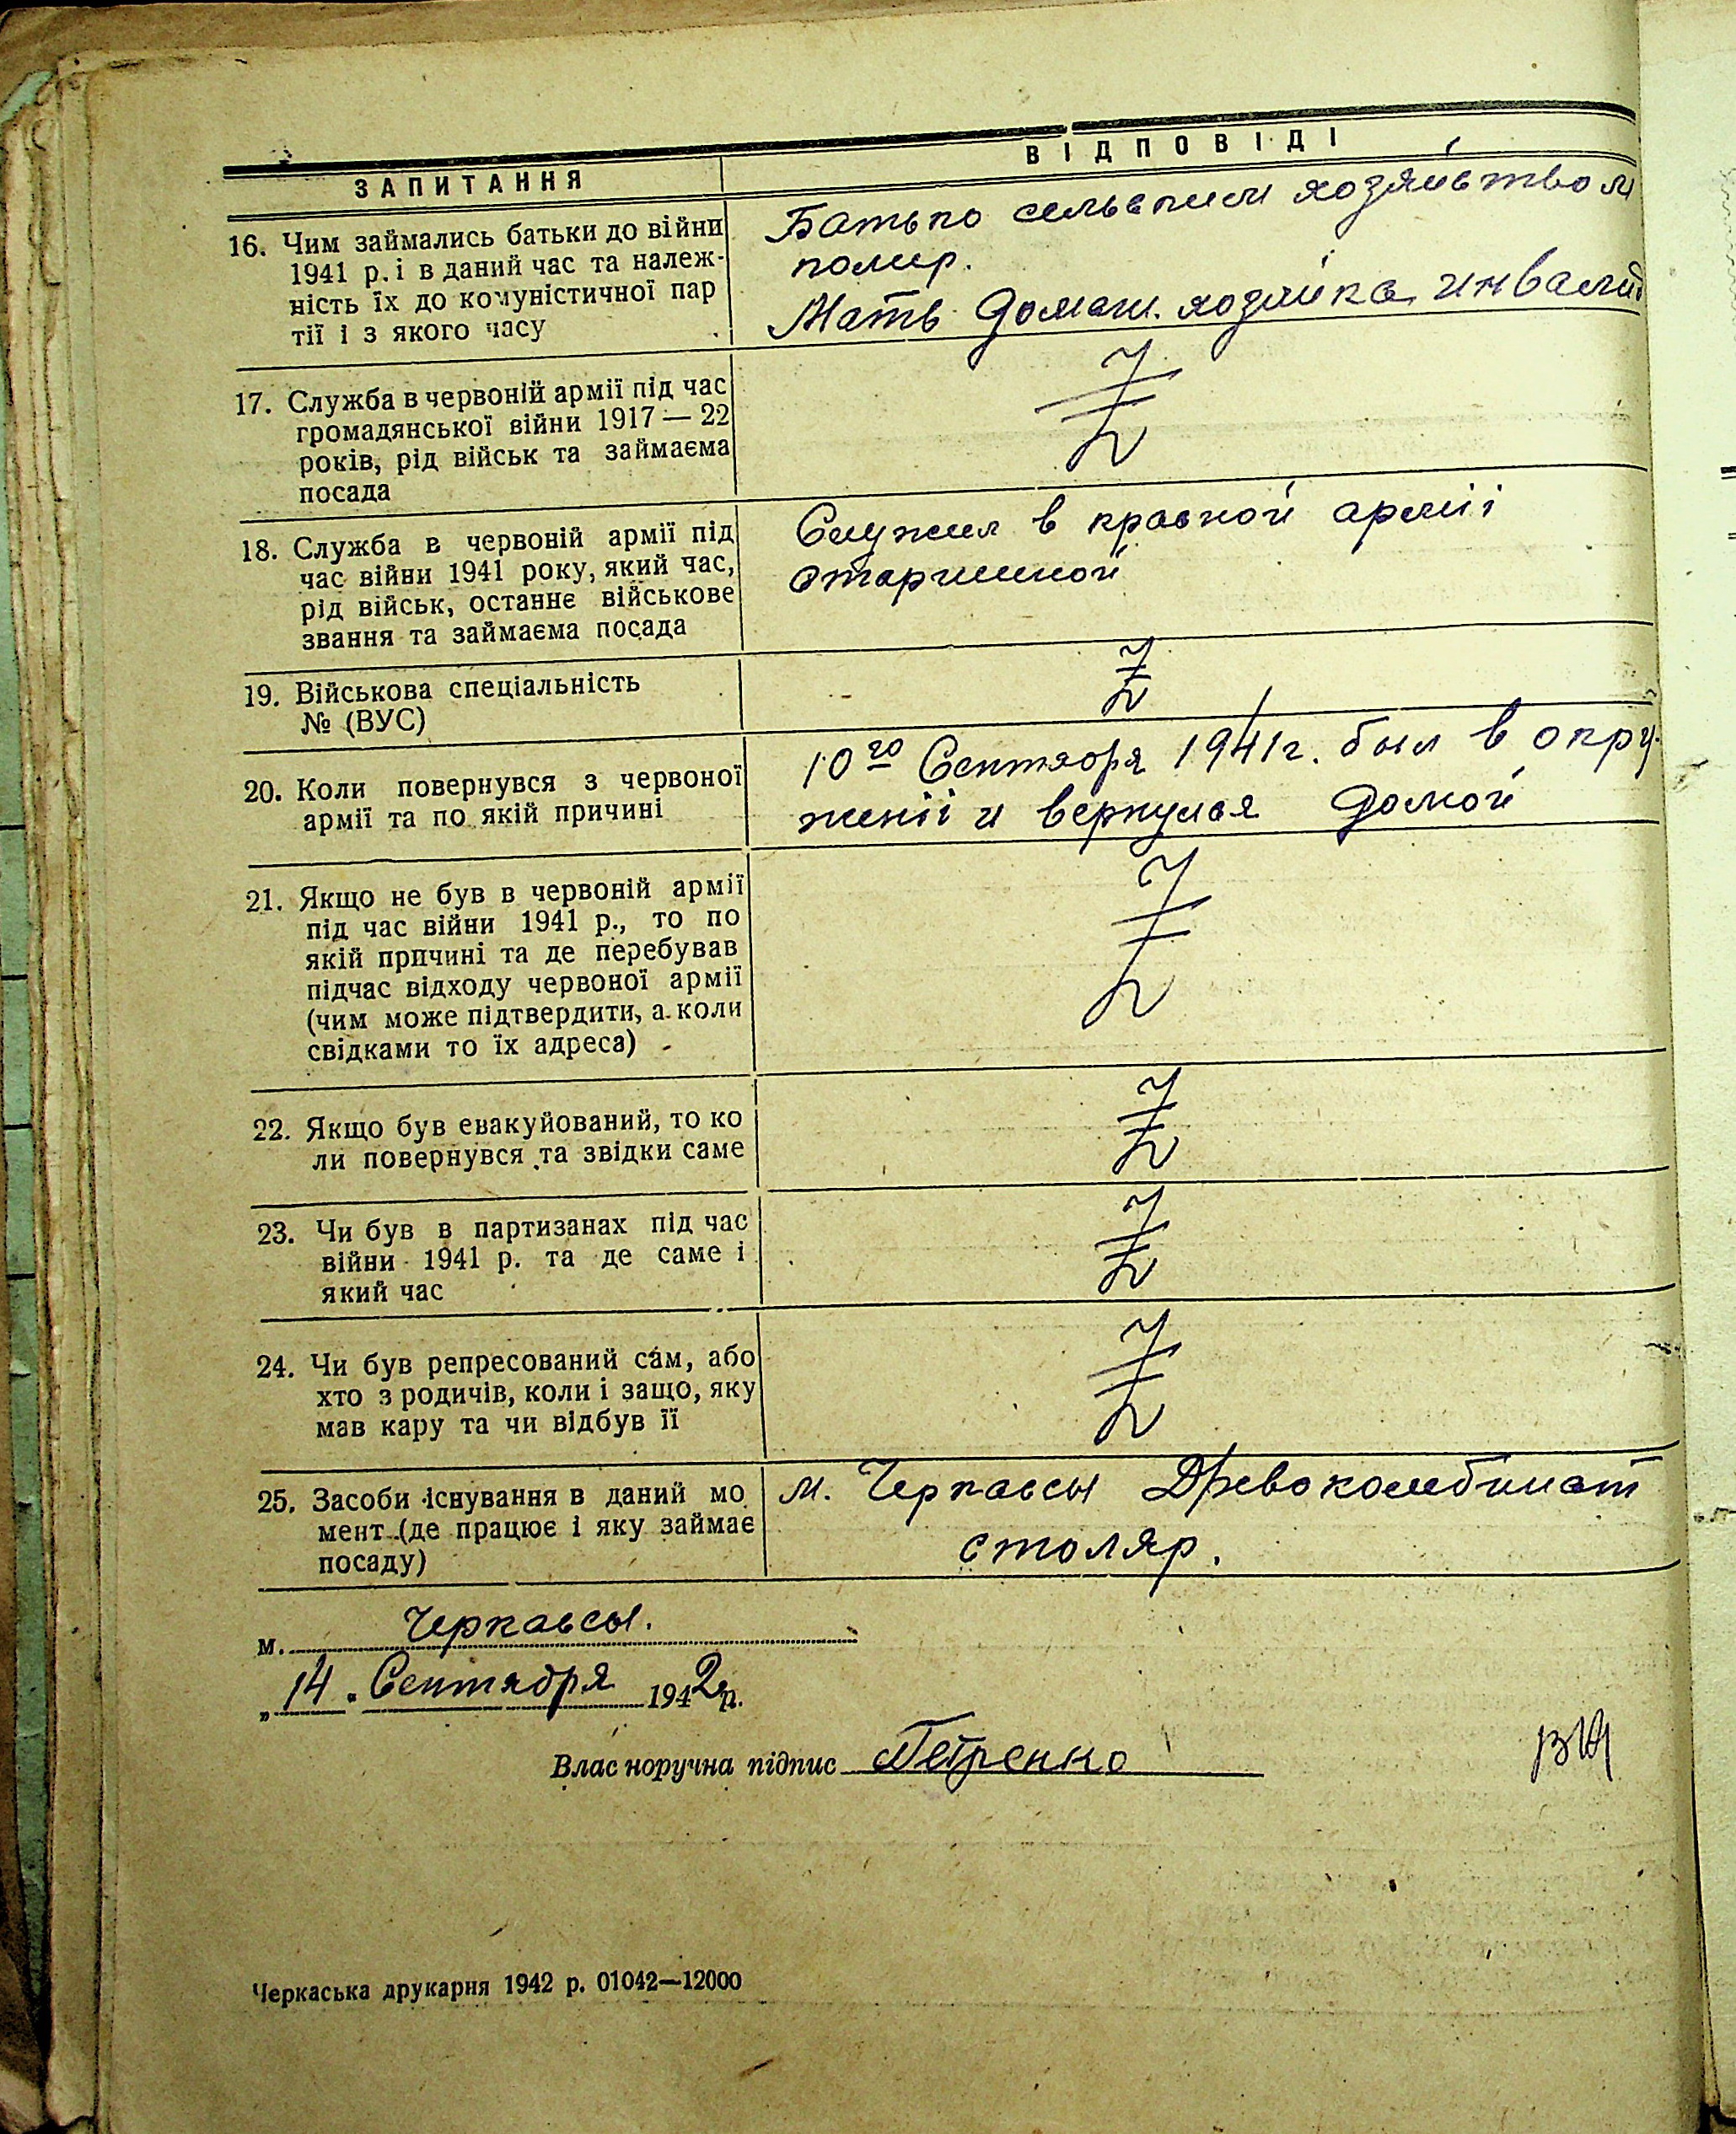 ЗАПИТАННЯ
ВІДПОВІДІ
16. Чим займались батьки до війни
1941 р. і в даний час та належ-
ність їх до комуністичної пар
тії і з якого часу
Батько сельским хозяйством
помер.
Мать домаш. хозяйка, инвалид
17. Служба в червоній армії під час
громадянської війни 1917 — 22
років, рід військ та займаєма
посада
Z
18. Служба в червоній армії під
час війни 1941 року, який час,
рід військ, останнє військове
звання та займаєма посада
Служил в красной арміі
старшиной
19. Військова спеціальність
№ (ВУС)
Z
20. Коли повернувся з червоної
армії та по якій причині
10го Сентября 1941г. был в окру-
женіі и вернулся домой
21. Якщо не був в червоній армії
під час війни 1941 р., то по
якій причині та де перебував
підчас відходу червоної армії
(чим може підтвердити, а коли
свідками то їх адреса)
Z
22. Якщо був евакуйований, то ко
ли повернувся та звідки саме
Z
23. Чи був в партизанах під час
війни 1941 р. та де саме і
який час
Z
24. Чи був репресований сам, або
хто з родичів, коли і защо, яку
мав кару та чи відбув її
Z
25. Засоби існування в даний мо
мент (де працює і яку займає
посаду)
м. Черкассы Древокомбинат
столяр.
м. Черкассы.
„14„ Сентября 1942р.
Власноручна підпис Петренко
Черкаська друкарня 1942 р. 01042—12000